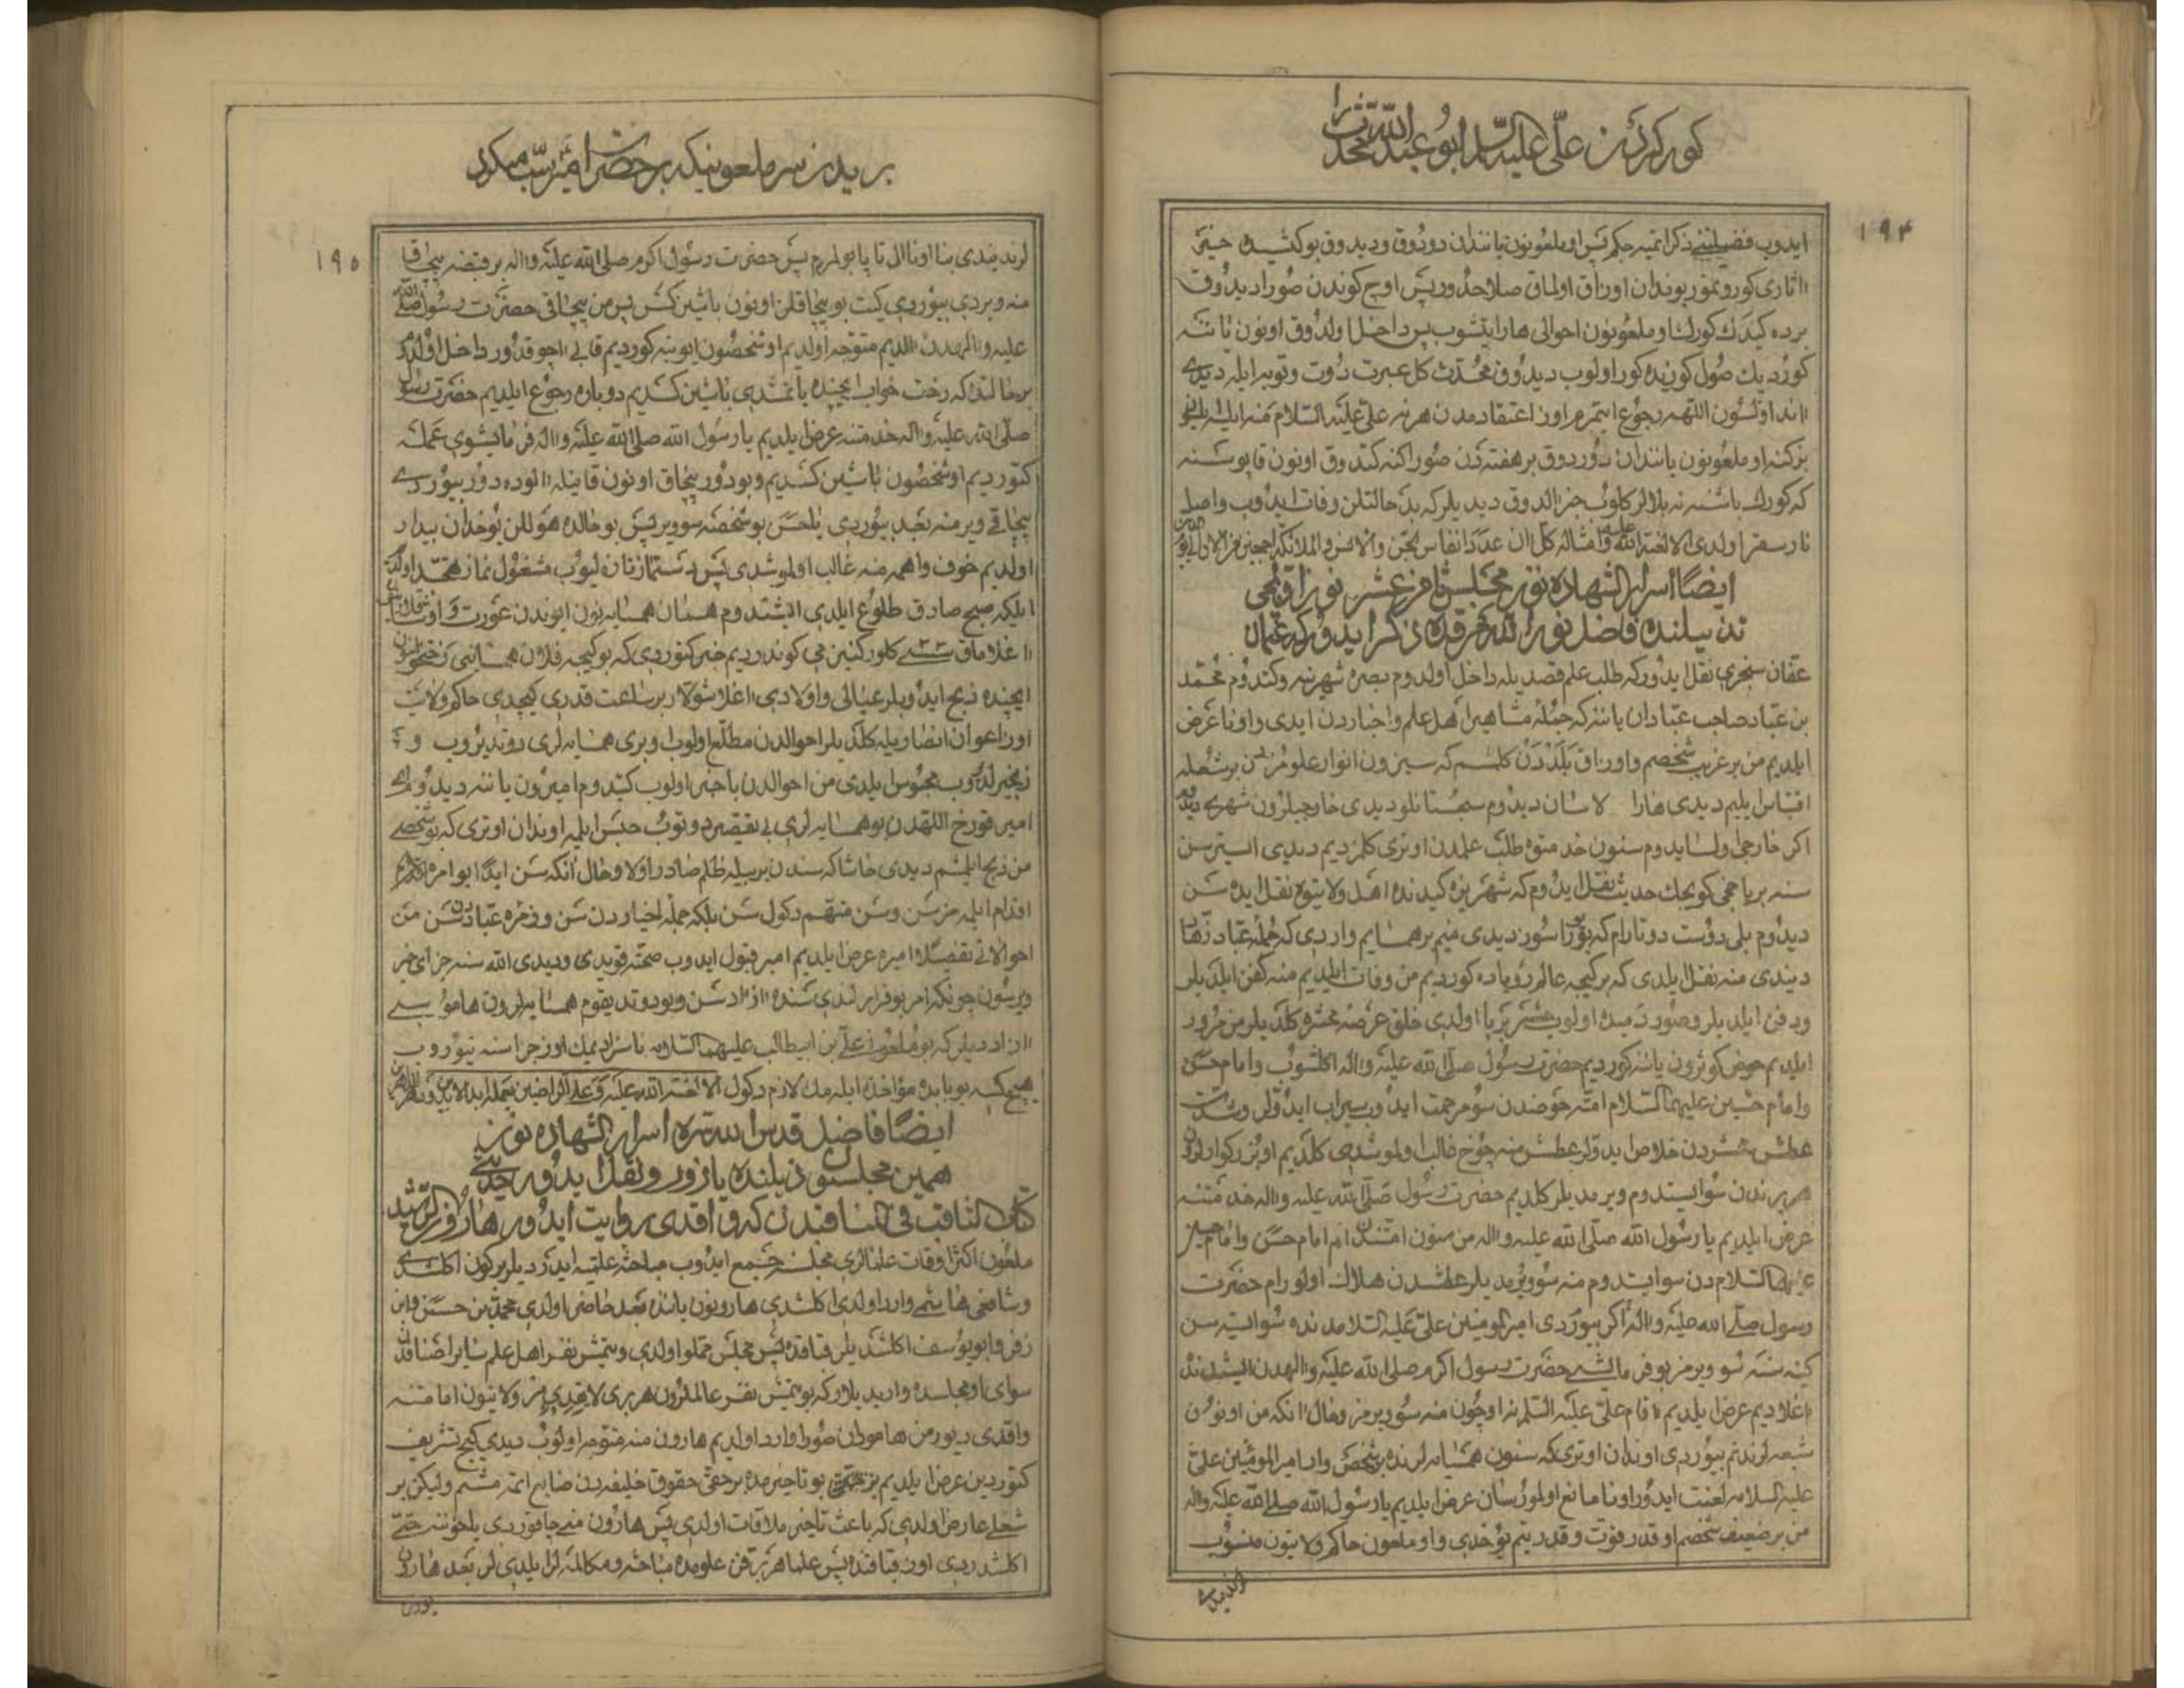 کور کردن علی علیه السلم ابو عبد الله محدث را
۱۹۴
ایدوب فضیلتنی ذکر ایتمیه جکم پس او ملعونون یانندان دوردوق و دیدوق بو کتدی حتی
اثاری کورونمور بوندان اوزاق اولماق صلاحدور پس اوچ کوندن صورا دیدوق
برده کیدک کورک او ملعونون احوالی هارا یتشوب پس داخل اولدوق اونون یاننه
کوردیک صول کوزیده کور اولوب دیدوق محدث کل عبرت دوت و توبه ایله دیدی
اند اولسون اللهه رجوع ایتمرم اوز اعتقادمدن هر نه علی علیه السلام منه ایلیه بلنجه
بز کنه او ملعونون یانندان دوردوق بر هفته دن صورا کنه کتدوق اونون قاپوسنه
که کورک باشنه نه بلالر کلوب خبر الدوق دیدیلر که بد حالتلن وفات ایدوب واصل
نار سقر اولدی الا لعنة الله علیه و امثاله کل ان عدد انفاس الجن والانس والملائکة اجمعین
ایضا اسرار الشهاده نون مجلس ثامن عشر نون اون
تذنیبلنده فاضل نور الله مرقده ذکر ایدور که عثمان
عفان سنجری نقل ایدور که طلب علم قصدیله داخل اولدوم بصره شهرینه و کتدوم محمد
بن عباد صاحب عبادان یاننه که جمله مشاهیر اهل علم و اخباردن ایدی و اونا عرض
ایلدیم من بر غریب شخصم و اوزاق بلددن کلمشم که سیزون انوار علومزدن بر شعله
اقتباس ایلیم دیدی هارا لاسان دیدوم سجستانلو دیدی خارجیلرون شهری دیدوم
اکر خارجی اولسایدوم سنون خدمتوه طلب علمدن اوتری کلمزدیم دیدی ایسترسن
سنه بر یاخجی کویجک حدیث نقل ایدوم که شهریزه کیدنده اهل ولایتوه نقل ایده سن
دیدوم بلی دوست دوتارام که بیوراسوز دیدی منیم بر همسایم واردی که جمله عباد زهاد
دیندی منه نقل ایلدی که بر کیجه عالم رویاده کوردیم من وفات ایلدیم منه کفن ایلدیلر
و دفن ایلدیلر و صور دمیده اولوب حشر برپا اولدی خلق عرصه محشره کلدیلر من مرور
ایلدیم حوض کوثرون یاننه کوردیم حضرت رسول صلی الله علیه واله اکلشوب و امام حسن
و امام حسین علیهما السلام امته حوضدن سو مرحمت ایدوب سیراب ایدولر و شدت
عطش حشردن خلاص ایدولر عطش منه چوخ غالب اولموشدی کلدیم او بزرکوارلرون
هر بریندن سو ایستدوم ویرمدیلر کلدیم حضرت رسول صلی الله علیه واله خدمتنه
عرض ایلدیم یا رسول الله صلی الله علیه واله من سنون امتندن ام امام حسن و امام حسین
علیهما السلام دن سو ایستدوم منه سو ویرمدیلر عطشدن هلاک اولورام حضرت
رسول صلی الله علیه واله اکر بیوردی امیر المومنین علی علیه السلامدنده سو ایستیه سن
کینه سنه سو ویرمز بو فرمایشی حضرت رسول اکرم صلی الله علیه والهدن ایشیدنده
اغلادیم عرض ایلدیم اقام علی علیه السلم نیه اوچون منه سو ویرمز و حال انکه من اونون
شیعه لرندنم بیوردی اوندان اوتری که سنون همسایه لرنده بر شخص وار امیر المومنین علی
علیه السلامه لعنت ایدور اونا مانع اولمورسان عرض ایلدیم یا رسول الله صلی الله علیه واله
من بر ضعیف شخصم او قدر قوت و قدرتیم یوخدی و او ملعون حاکم ولایتون منسوب
لرندیدی
بریدن سر ملعونیکه بر حضرت امیر سب میکرد
۱۹۵
لرندیندی بنا اونا ال تاپا بولمرم پس حضرت رسول اکرم صلی الله علیه واله بر قبضه پچاق
منه ویردی بیوردی کیت بو پچاقلن اونون باشین کس پس من پچاقی حضرت رسول صلی الله
علیه والهدن الدیم متوجه اولدیم او شخصون ایوینه کوردیم قاپی اچوقدور داخل اولدوم
بر حالتده که رخت خواب ایچنده یاتمشدی باشین کسدیم دوباره رجوع ایلدیم حضرت رسول
صلی الله علیه واله خدمتنه عرض ایلدیم یا رسول الله صلی الله علیه واله فرمایشوی عمله
کتوردیم او شخصون باشین کسدیم و بودور پچاق اونون قانیله الوده دور بیوردی
پچاقی ویر منه بعد بیوردی یا حسن بو شخصه سو ویر پس بو حالده هوللن یوخدان بیدار
اولدیم خوف و اهمه منه غالب اولموشدی پس دستماز تازه لیوب مشغول نماز تهجد اولدوم
ایلکه صبح صادق طلوع ایلدی ایشتدوم همان همسایه نون ایوندن عورت و اوشاقلارون
اغلاماق سسی کلور کنیزیمی کوندردیم خبر کتوردی که بو کیجه فلان همسانی رختخوابی
ایچنده ذبح ایدوبلر عیالی و اولادی اغلاشولار بر ساعت قدری کیچدی حاکم ولایت
اوز اعوان انصاریله کلدیلر احوالدن مطلع اولوب و بری همسایه لری دوتدیروب و
زنجیرلدوب محبوس ایلدی من احوالدن باخبر اولوب کیتدوم امیرون یاننه دیدوم ای
امیر قورخ اللهدن بو همسایه لری بی تقصیر دوتوب حبس ایلمه اوندان اوتری که بو شخصی
من ذبح ایلمشم دیدی حاشا که سندن بر بیله ظلم صادر اولا و حال انکه سن ایدا بو امره
اقدام ایلیه مزسن و سن متهم دکول سن بلکه جمله اخیاردن سن و زمره عباددن سن من
احوالاتی تفصیلا امیره عرض ایلدیم امیر قبول ایدوب صحته قویدی و دیدی الله سنه جزای خیر
ویرسون چونکه امر بو قرارلندی سنده ازادسن و بو دوتدیقوم همسایه لرون هاموسی
ازاددیلر که بو ملعون علی بن ابیطالب علیهما السلامه ناسزا دیمک اوز جزاسنه یتوروب
هیچ کسه بو بابده مؤاخذه ایلمک لازم دکول الا لعنة الله علیه
ایضا فاضل قدس الله سره اسرار الشهاده نون
همین مجلسون ذیلنده یازور و نقل ایدور حدیثی
کتاب الثاقب فی المناقبدن که واقدی روایت ایدور هارون الرشید
ملعون اکثر اوقات علمالری مجلسنه جمع ایدوب مباحثه علمیه ایدردیلر بر کون اکلشدی
و شافعی هاشمی وارد اولدی اکلشدی هارونون یاننده بعد حاضر اولدی محمد بن حسن و ابن
زفر و ابو یوسف اکلشدیلر قباقنده پس مجلس مملو اولدی و یتمش نفر اهل علم سایر اصنافدن
سوای او مجلسده وار ایدیلار که بو یتمش نفر عالملرون هر بری لایقدی بر ولایتون امامتنه
واقدی دیور من هامودان صورا وارد اولدیم هارون منه متوجه اولوب دیدی کیج تشریف
کتوردین عرض ایلدیم بو تاخیرمده بر حقی حقوق خلیفه دن ضایع ایتمه مشم ولیکن بر
شغلی عارض اولدی که باعث تاخیر ملاقات اولدی پس هارون منی چاقوردی یاخونه حتی
اکلشدردی اوز قباقنده پس علما هر بر فن علومده مباحثه و مکالمه لر ایلدیلر بعد هارون